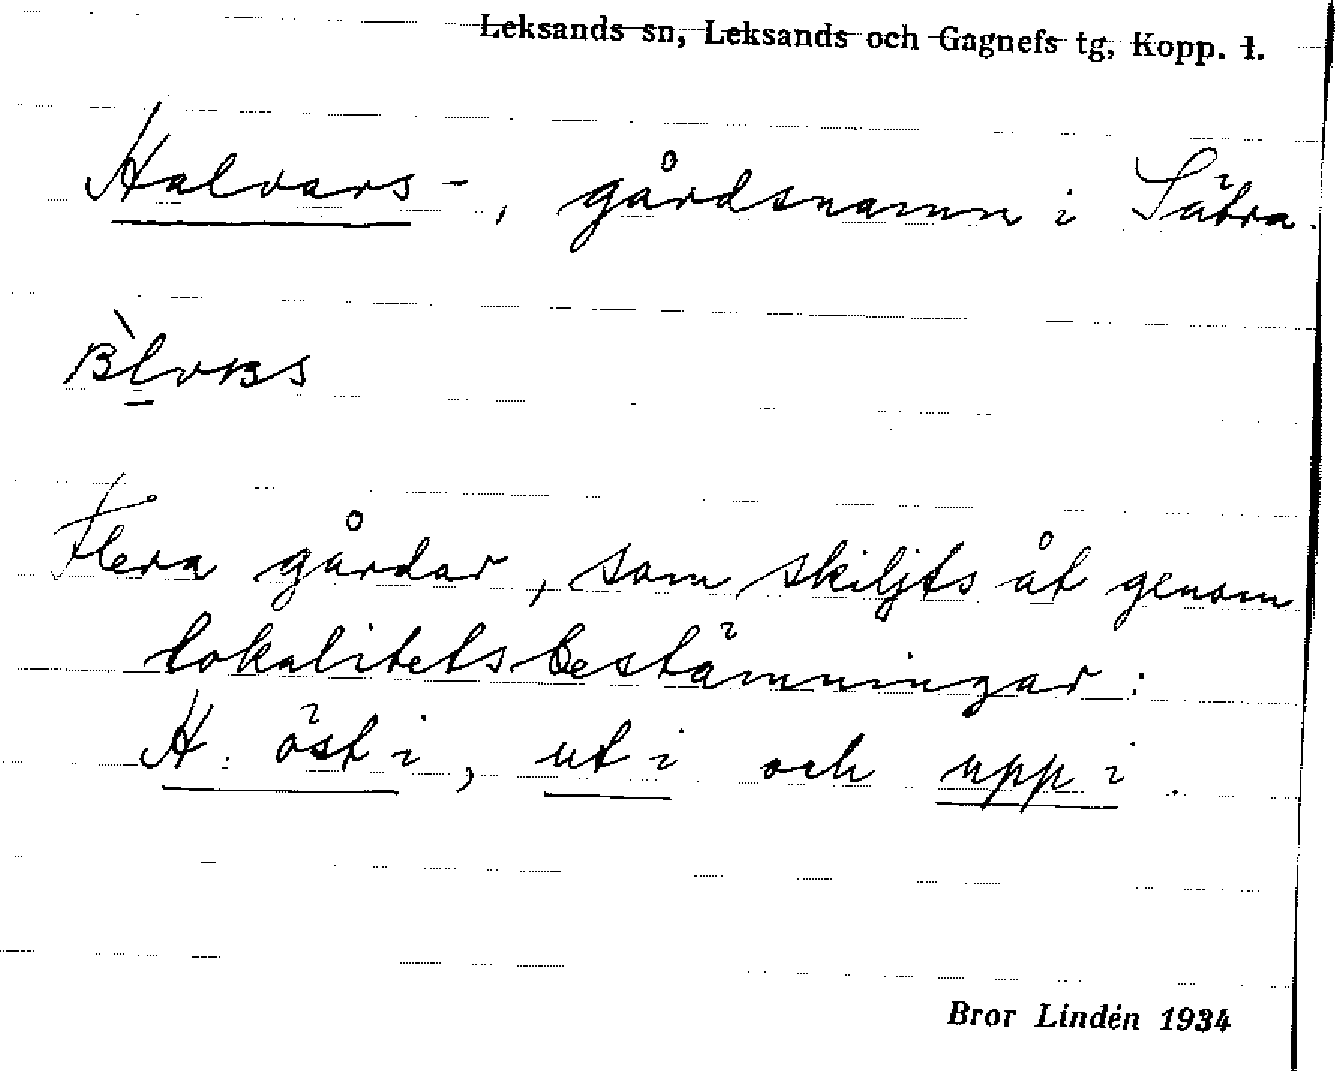 Leksands sn, Leksands och Gagnefs tg, Kopp. l.
Halvars-, gårdsnamn i Sätra.
Flera gårdar, som skiljts åt genom
lokalitetsbestämningar:
H. öst i, ut i och upp i.
Bror Lindén 1934